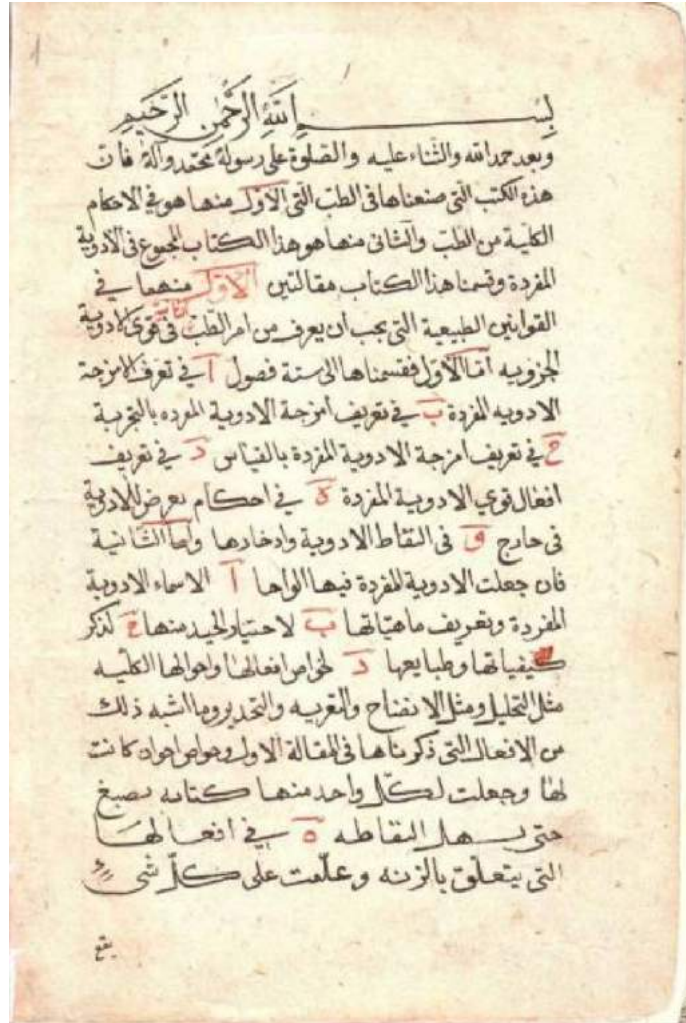 بسم الله الرحمن الرحيم
وبعد حمد الله والثناء عليه والصلوة على رسوله محمد وآله فان
هذه الكتب التى صنعناها فى الطب التى الاول منها هو فى الاحكام
الكلية من الطب والثانى منها هو هذا الكتاب المجموع فى الادوية
المفردة وقسمنا هذا الكتاب مقالتين الاول منهما فى
القوانين الطبيعية التى يجب ان يعرف من امر الطب فى قوى الادوية
الجزويه اما الاول فقسمناها الى ستة فصول ا فى تعرف الامزجة
الادويه المفردة ب فى تعريف امزجة الادوية المفرده بالتجربة
ج فى تعريف امزجة الادوية المفردة بالقياس د فى تعريف
افعال قوي الادوية المفردة ه فى احكام يعرض للادوية
فى خارج و فى التقاط الادوية وادخارها واما الثانية
فان جعلت الادوية المفردة فيها الواحا ا الاسماء الادوية
المفردة وتعريف ماهياتها ب لاختيار الجيد منها ج لذكر
كيفياتها وطبايعها د لخواص افعالها واحوالها الكليه
مثل التحليل ومثل الانضاح والتغريه والتخدير وما اشبه ذلك
من الافعال التى ذكرناها فى المقالة الاولى وخواص اخران كانت
لها وجعلت لكل واحد منها كتابه بصبغ
حتى يسهل التقاطه ه فى افعالها
التى يتعلق بالزنه وعلمت على كل شى
يقع